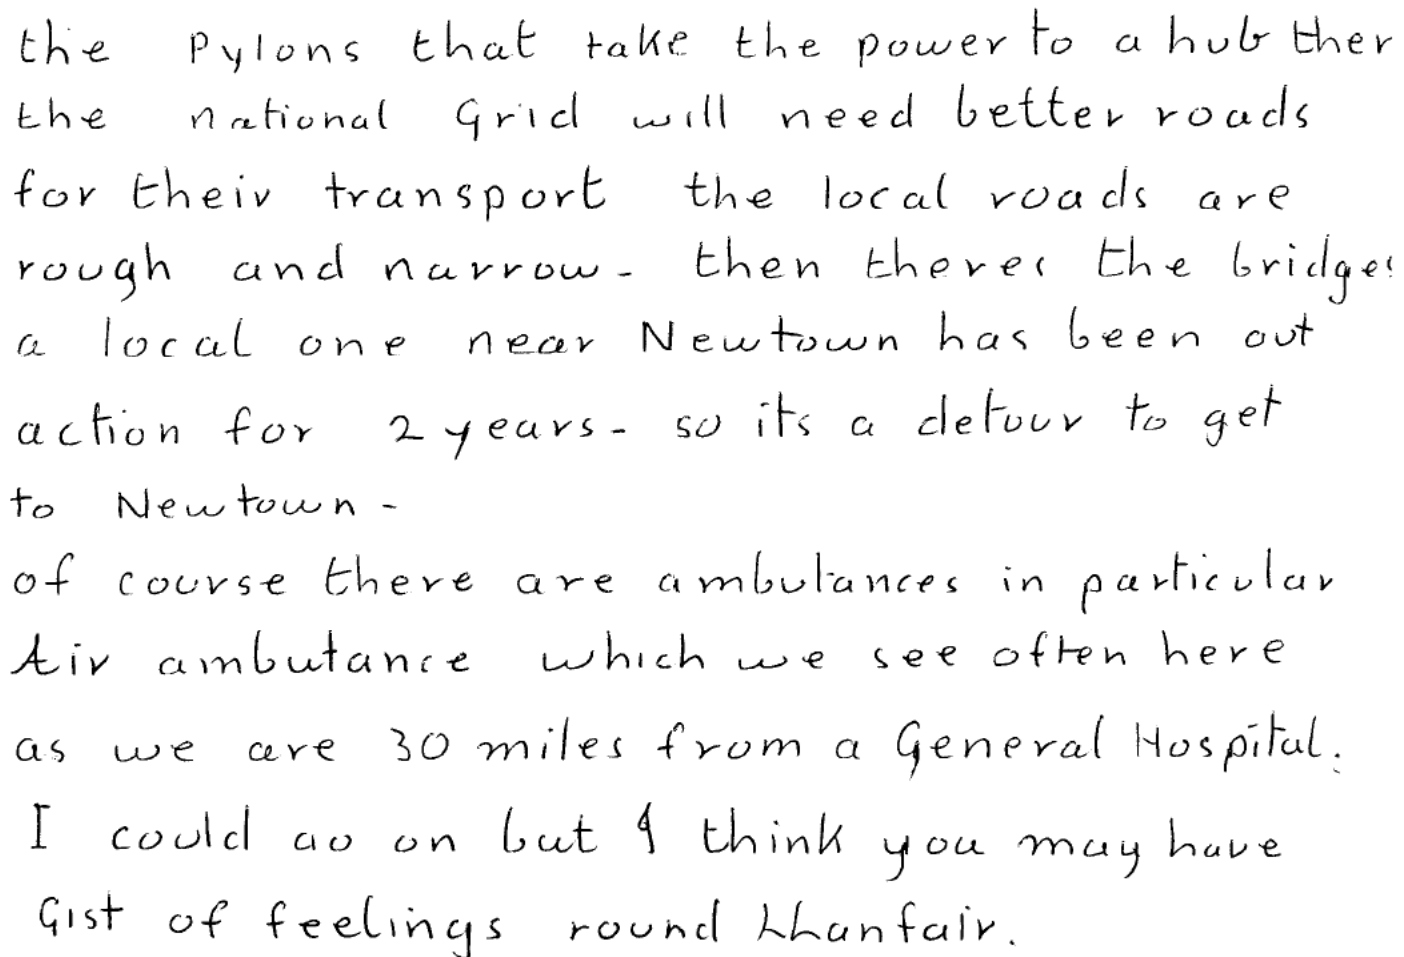 the Pylons that take the power to a hub ther
the national Grid will need better roads
for their transport the local roads are
rough and narrow - then theres the bridges
a local one near Newtown has been out
action for 2 years - so its a detour to get
to Newtown -
of course there are ambulances in particular
Air ambutance which we see often here
as we are 30 miles from a General Hospital.
I could go on but I think you may have
Gist of feelings round Llanfair.